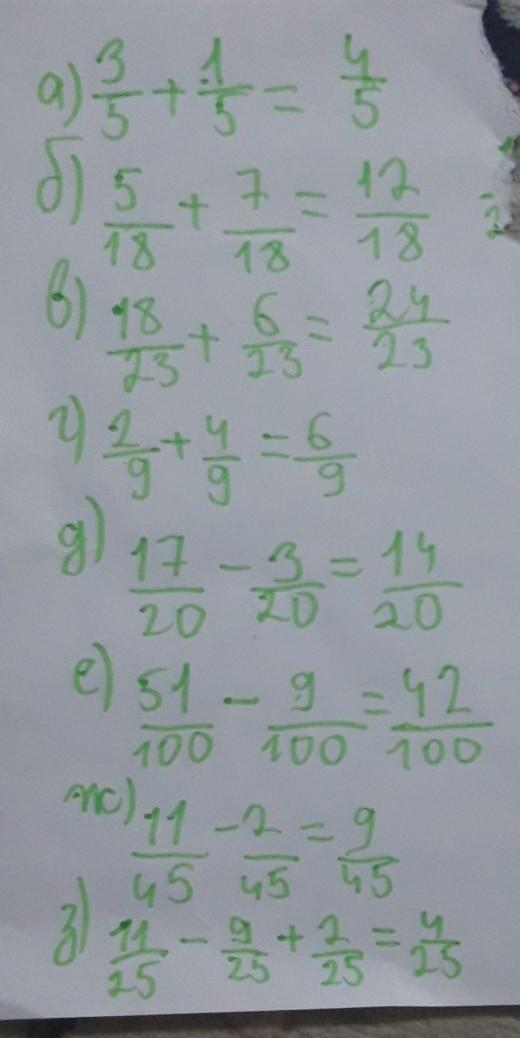 а) 3/5 + 1/5 = 4/5
б) 5/18 + 7/18 = 12/18
в) 18/23 + 6/23 = 24/23
г) 2/9 + 4/9 = 6/9
д) 17/20 - 3/20 = 14/20
е) 51/100 - 9/100 = 42/100
ж) 11/45 - 2/45 = 9/45
з) 11/25 - 9/25 + 2/25 = 4/25